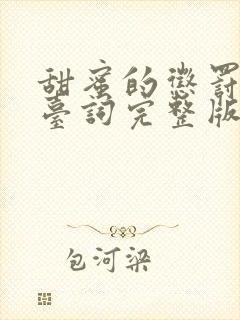 甜蜜的懲罰
臺詞完整版
包河梁